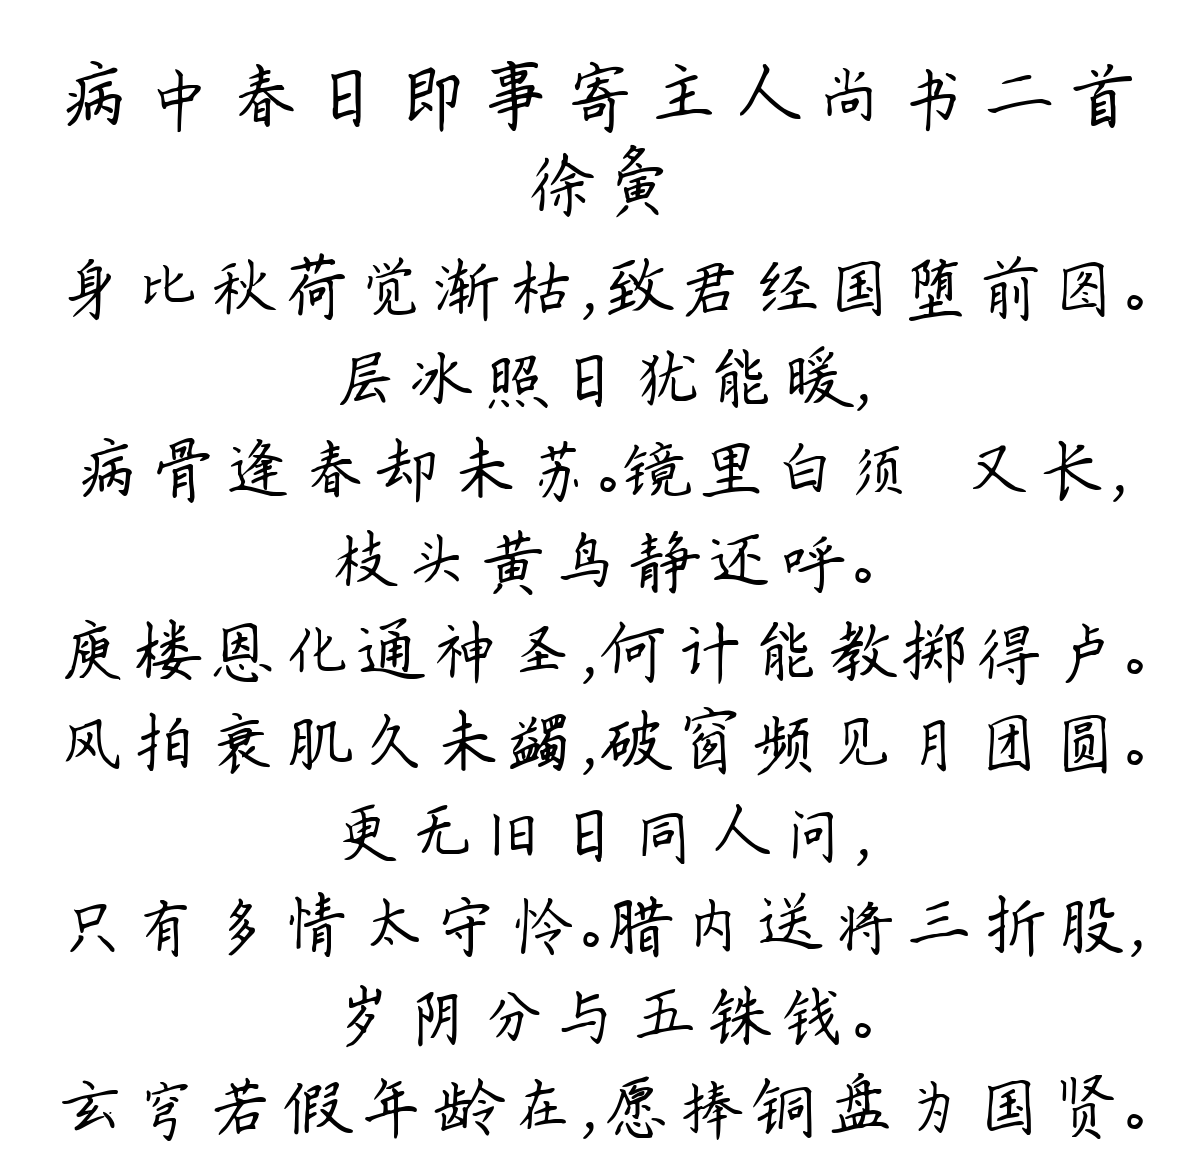 病中春日即事寄主人尚书二首
徐夤
身比秋荷觉渐枯,致君经国堕前图。
层冰照日犹能暖,
病骨逢春却未苏。镜里白须 又长,
枝头黄鸟静还呼。
庾楼恩化通神圣,何计能教掷得卢。
风拍衰肌久未蠲,破窗频见月团圆。
更无旧日同人问,
只有多情太守怜。腊内送将三折股,
岁阴分与五铢钱。
玄穹若假年龄在,愿捧铜盘为国贤。